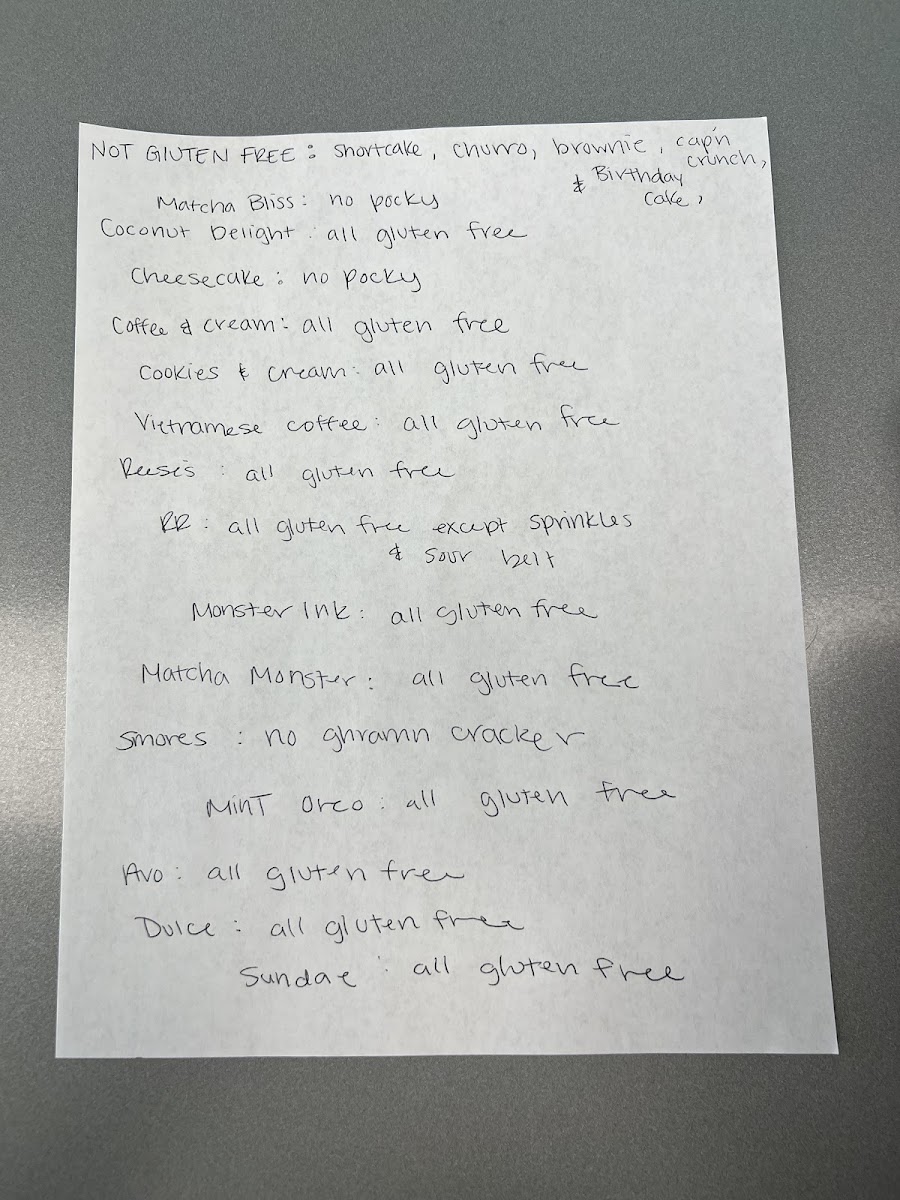 NOT GLUTEN FREE: shortcake, churro, brownie, cap'n crunch,
& Birthday cake,
Matcha Bliss: no pocky
Coconut Delight: all gluten free
Cheesecake: no pocky
Coffee & cream: all gluten free
Cookies & cream: all gluten free
Vietnamese coffee: all gluten free
Reese's: all gluten free
RR: all gluten free except sprinkles
& sour belt
Monster Ink: all gluten free
Matcha Monster: all gluten free
Smores: no ghramn cracker
MinT Oreo: all gluten free
Avo: all gluten free
Dulce: all gluten free
Sundae: all gluten free